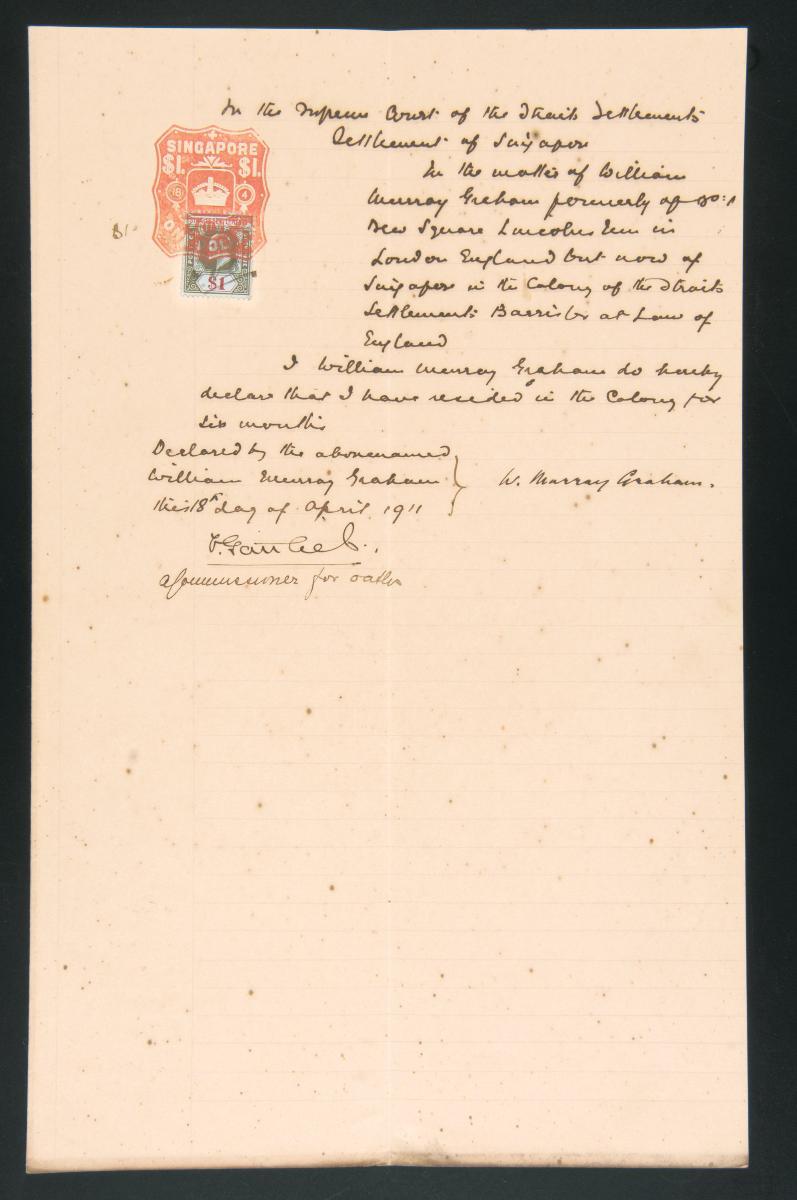 In the Supreme Court of the Straits Settlements
Settlement of Singapore
SINGAPORE
$1. $1.
18 4
$1
$1
In the matter of William
Murray Graham formerly of No: 1
New Square Lincolns Inn in
London England but now of
Singapore in the Colony of the Straits
Settlements Barrister at Law of
England
I William Murray Graham do hereby
declare that I have resided in the Colony for
six months
Declared by the abovenamed
William Murray Graham
this 18th day of April 1911
W. Murray Graham.
a Commissioner for oaths